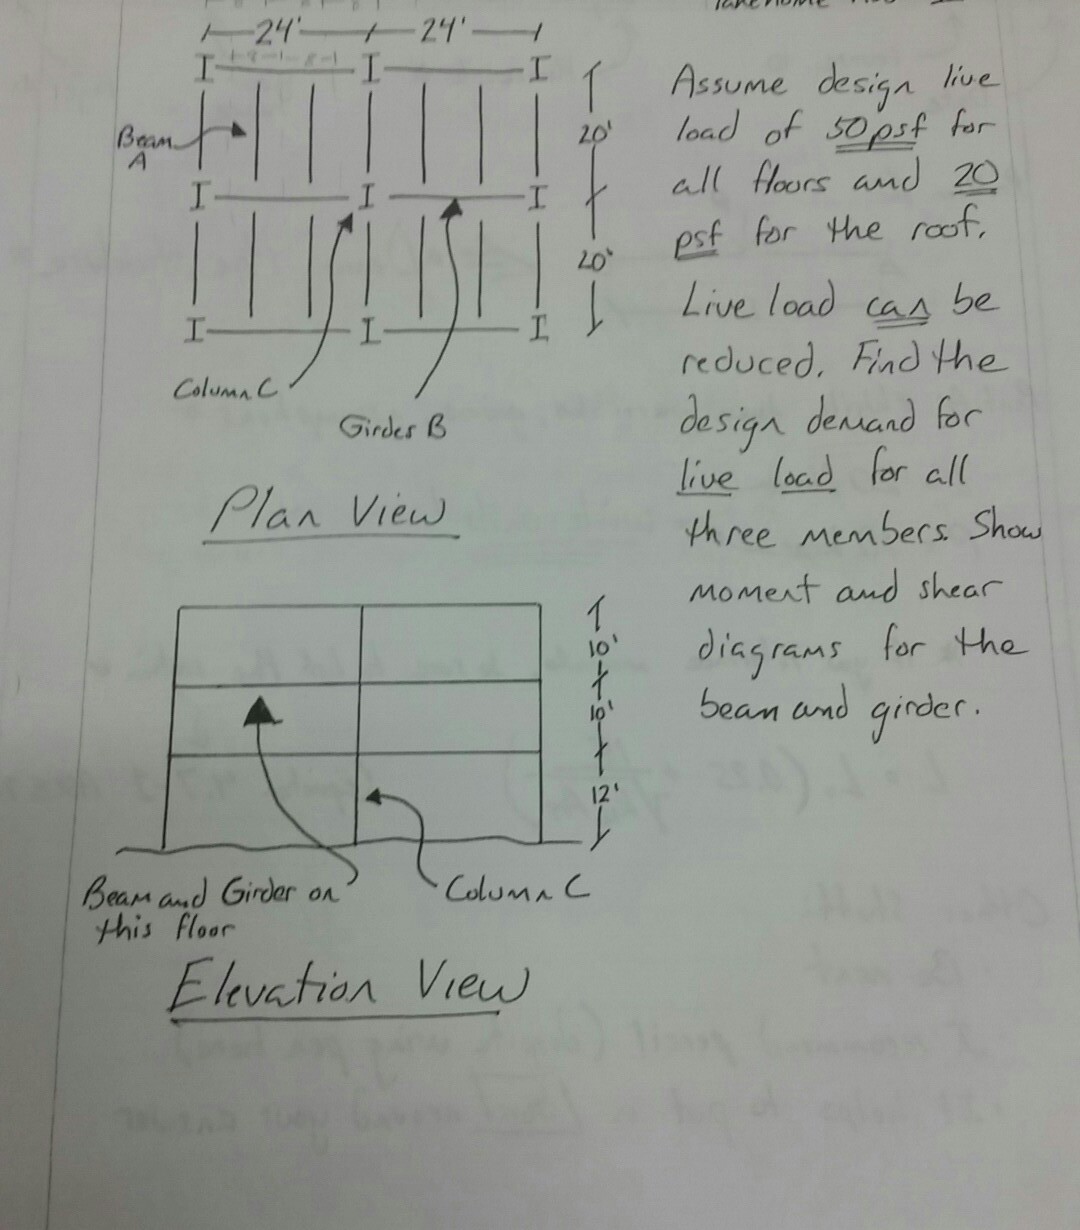 24' 24'
Beam
A
20'
20'
Column C
Girder B
Plan View
Assume design live
load of 50 psf for
all floors and 20
psf for the roof.
Live load can be
reduced. Find the
design demand for
live load for all
three members. Show
moment and shear
diagrams for the
beam and girder.
10'
10'
12'
Beam and Girder on
this floor
Column C
Elevation View